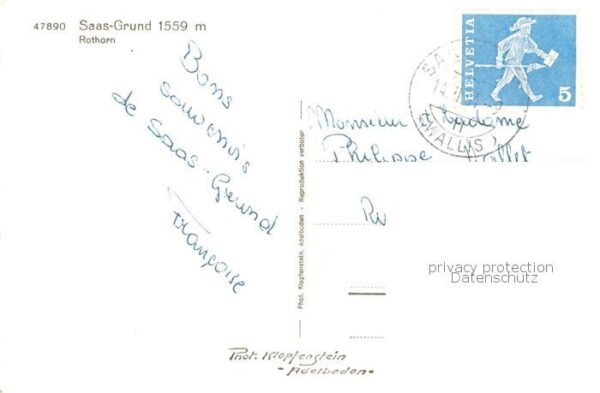 47890 Saas-Grund 1559 m
Rothorn
Bons
souvenirs
de Saas-Grund
Françoise
Phot. Klopfenstein, Adelboden - Reproduktion verboten
HELVETIA
5
(WALLIS)
Monsieur et Madame
Philippe
privacy protection
Datenschutz
Phot. Klopfenstein
- Adelboden -